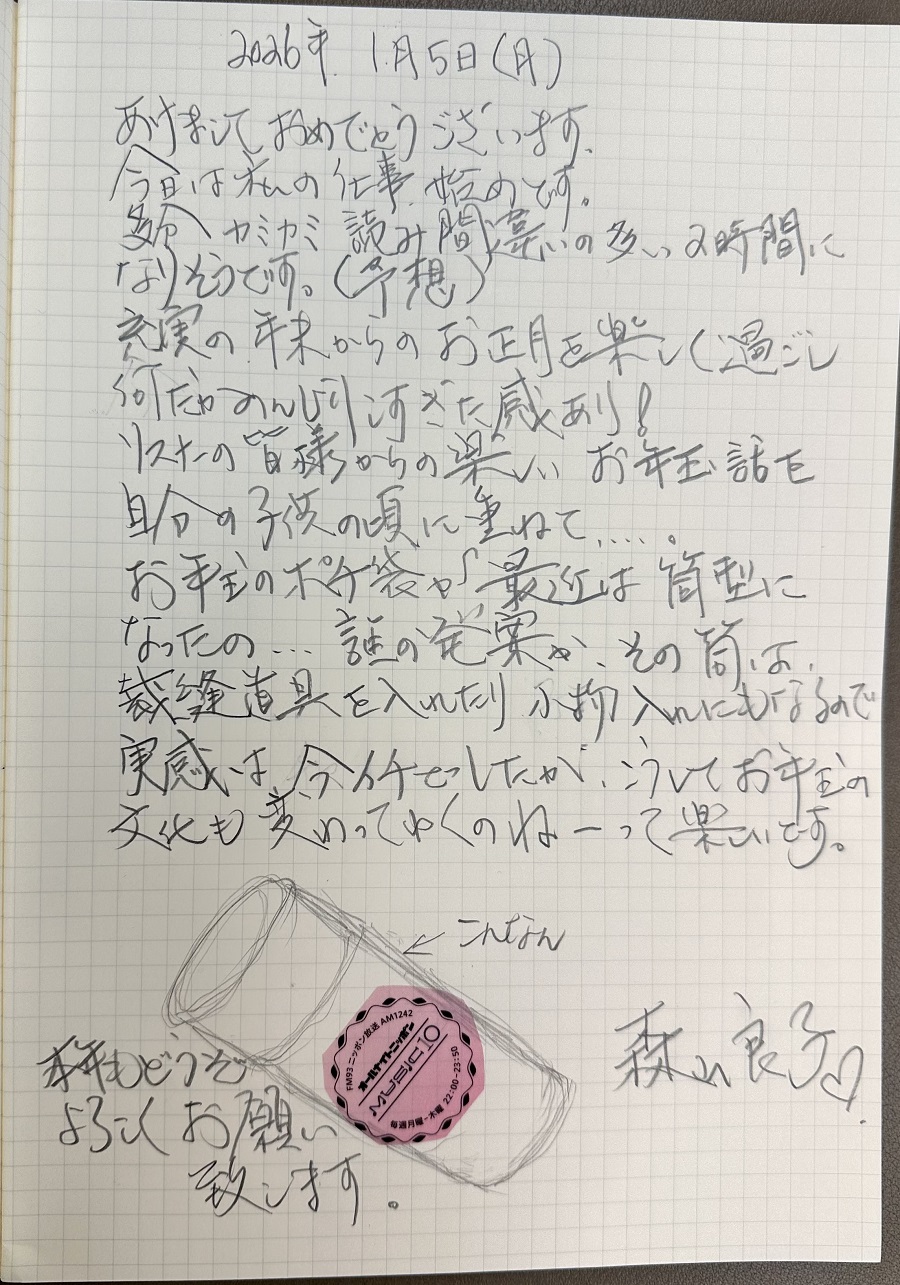 2026年 1月5日(月)
あけましておめでとうございます。
今日は私の仕事始めです。
多分 カミカミ 読み間違いの多い2時間に
なりそうです。(予想)
充実の年末からのお正月を楽しく過ごし
何だかのんびり過ぎた感あり!
リスナーの皆様からの楽しいお年玉話を
自分の子供の頃に重ねて.....。
お年玉のポチ袋が最近は筒型に
なったの... 誰の発案か、その筒は、
裁縫道具を入れたり小物入れにもなるので
実感は今イチでしたが、こうしてお年玉の
文化も変わってゆくのねーって楽しいです。
こんなん
FM93 ニッポン放送 AM1242
オールナイトニッポン
MUSIC10
毎週月曜-木曜 22:00-23:50
森山良子♡
本年もどうぞ
よろしくお願い
致します。